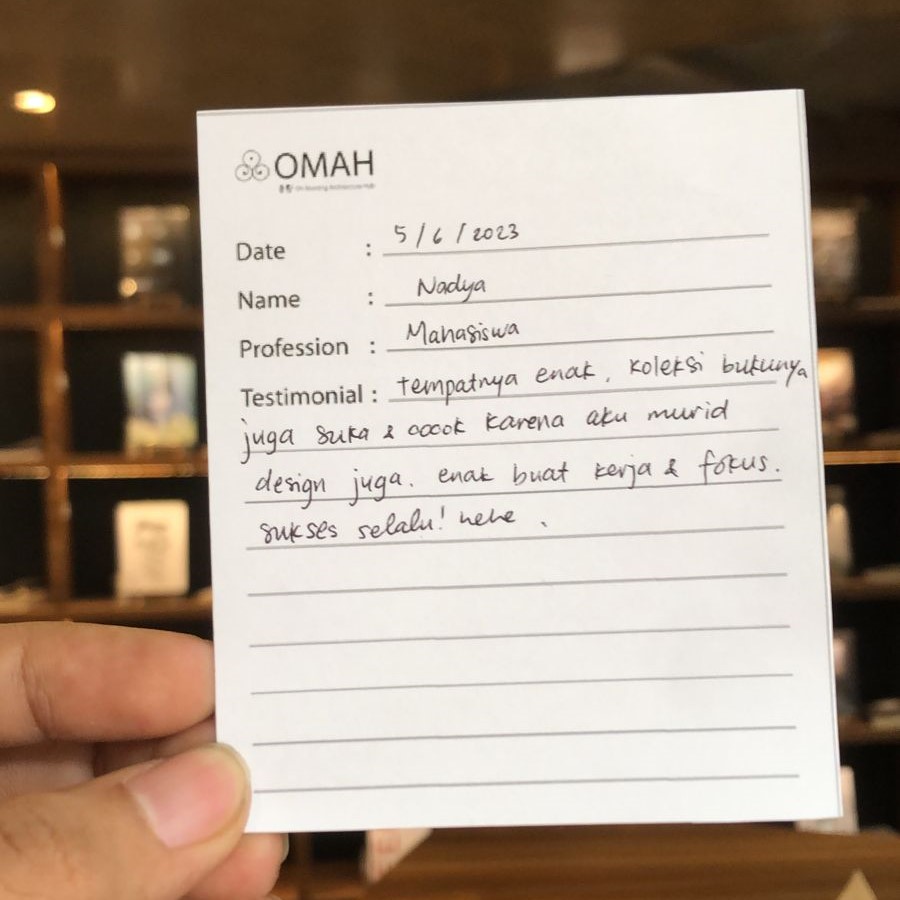 OMAH
Date : 5/6/2023
Name : Nadya
Profession : Mahasiswa
Testimonial : tempatnya enak, koleksi bukunya
juga suka & cocok karena aku murid
design juga. enak buat kerja & fokus.
sukses selalu! hehe.